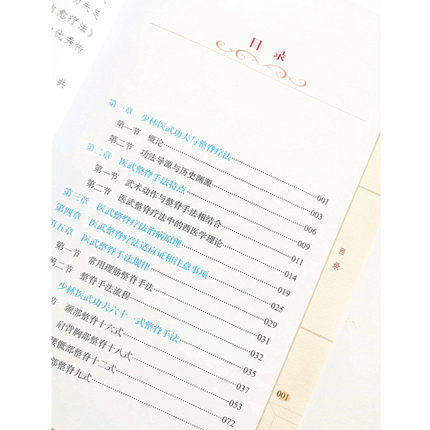 愈疗法》
优秀传
共
目录
第一章 少林医武功夫与整脊疗法 001
第一节 概论 003
第二节 功法导源与历史渊源 006
第二章 医武整脊手法特点 009
第一节 武术动作与整脊手法相结合 011
第二节 医武整脊疗法中的西医学理论 014
第三章 医武整脊疗法治病原则 019
第四章 医武整脊疗法适应证和注意事项 025
第五章 医武整脊手法规律 029
第一节 常用理筋手法 031
二节 整脊手法流程 032
少林医武功夫六十一式整脊手法 035
节 颈部整脊十六式 037
肩背胸部整脊十八式 053
腰骶部整脊十二式 072
部整脊九式
目录
001